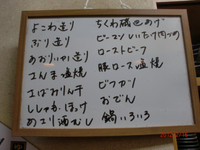 よこわ造り
ぶり造り
あおりいか造り
さんま塩焼
さばみりん干
ししゃも ほっけ
あさり酒むし
ちくわ磯辺あげ
ピーマンしいたけ肉づめ
ローストビーフ
豚ロース塩焼
ビフカツ
おでん
鍋いろいろ